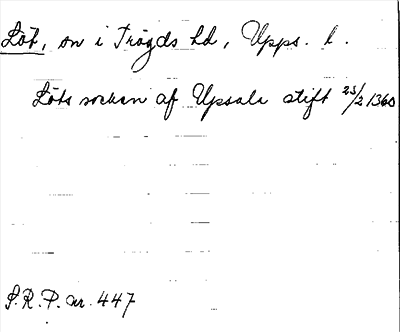 Löt, sn i Trögds hd, Upps. l.
Löts socken af Upsala stift 23/2 1360
S.R.P. nr. 447